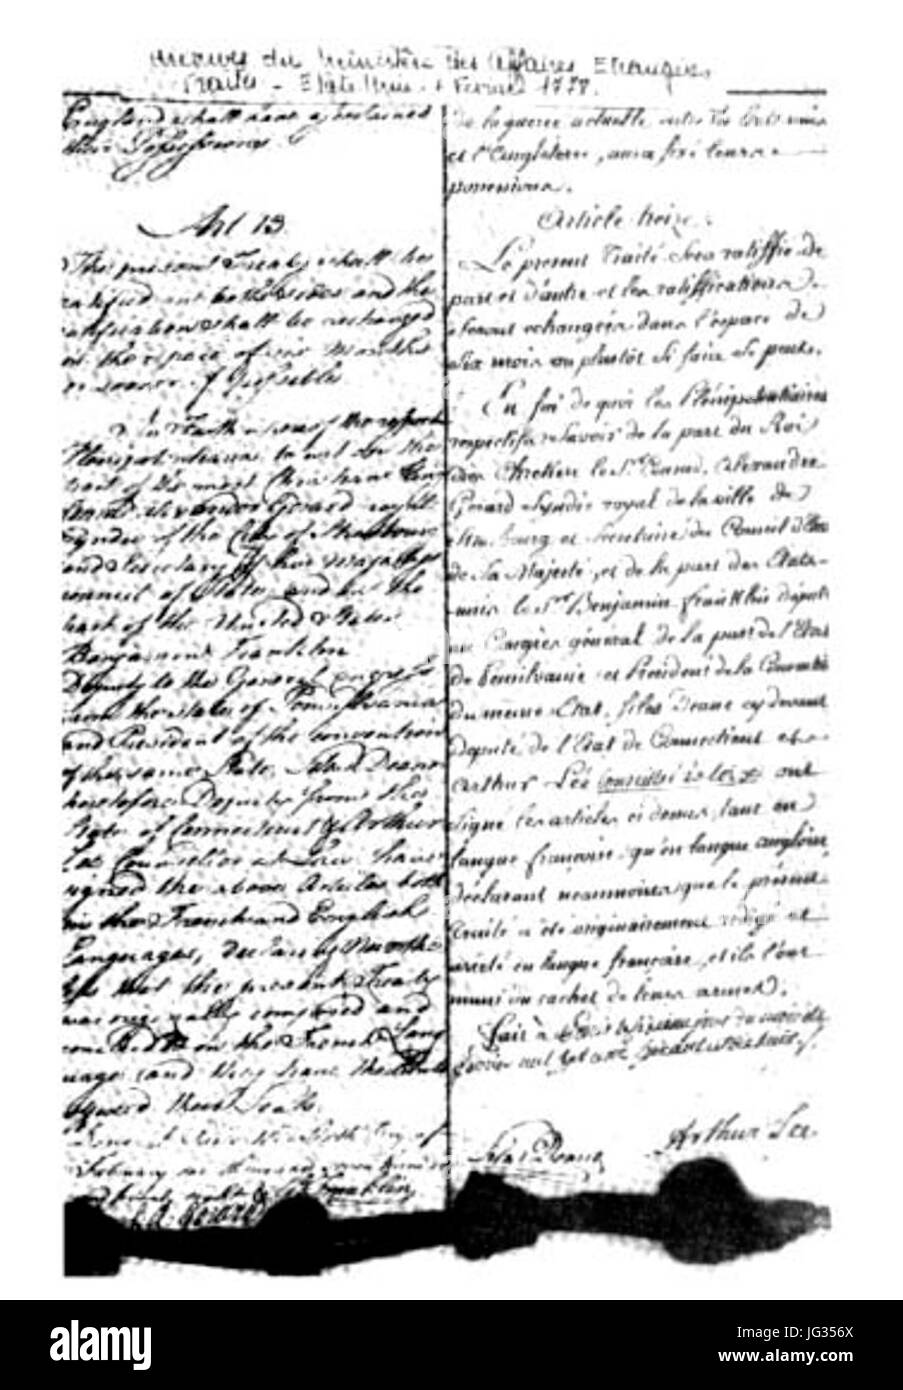 Archives du Ministère des Affaires Etrangères
Traités - Etats Unis - Fevrier 1778.
England shall have declared
their Possessions.
Art 13
The present Treaty shall be
ratified on both sides and the
ratifications shall be exchanged
in the space of six months
or sooner if possible
In Faith whereof the respective
Plenipotentiaries, to wit on the
Part of the most Christian King
Conrad Alexander Gerard royal
Syndic of the City of Strasbourg
and Secretary of his Majestys
Council of State, and on the
Part of the United States
Benjamin Franklin
Deputy to the General Congress
from the State of Pennsylvania
and President of the Convention
of the same State, Silas Deane
heretofore Deputy from the
State of Connecticut & Arthur
Lee Councellor at Law have
signed the above Articles both
in the French and English
Languages, declaring Neverthe
less that the present Treaty
was originally composed and
concluded in the French Lang
uage, and they have thereunto
affixed their Seals
Done at Paris this sixth Day of
February one thousand seven hundred
and seventy eight
B Franklin
C. A. Gerard
de la guerre actuelle entre les Etats unis
et l'Angleterre, aura fixé leurs
possessions.
Article treize.
Le present Traité sera ratiffié de
part et d'autre et les ratiffications
seront echangées dans l'espace de
Six mois ou plustôt si faire se peut.
En foi de quoi les Plénipotentiaires
respectifs, savoir de la part du Roi
très Chretien le Sr. Conrad Alexandre
Gerard Syndic royal de la ville de
Strasbourg et Secretaire du Conseil d'Etat
de Sa Majesté, et de la part des Etats-
unis le Sr. Benjamin franklin député
au Congrès général de la part de l'Etat
de Pensilvanie et Président de la Convention
du meme Etat, Silas Deane cy devant
député de l'Etat de Connecticut et
Arthur Lée Conseiller ès loix ont
signé les articles ci dessus, tant en
langue françoise, qu'en langue angloise
déclarant neanmoins que le présent
traité a été originairement redigé et
arrêté en langue françoise, et ils l'ont
muni du cachet de leurs armes.
Fait à Paris le sixieme jour du mois de
fevrier mil sept cent soixante dix huit
Silas Deane
Arthur Lee
alamy
Image ID: JG356X
www.alamy.com